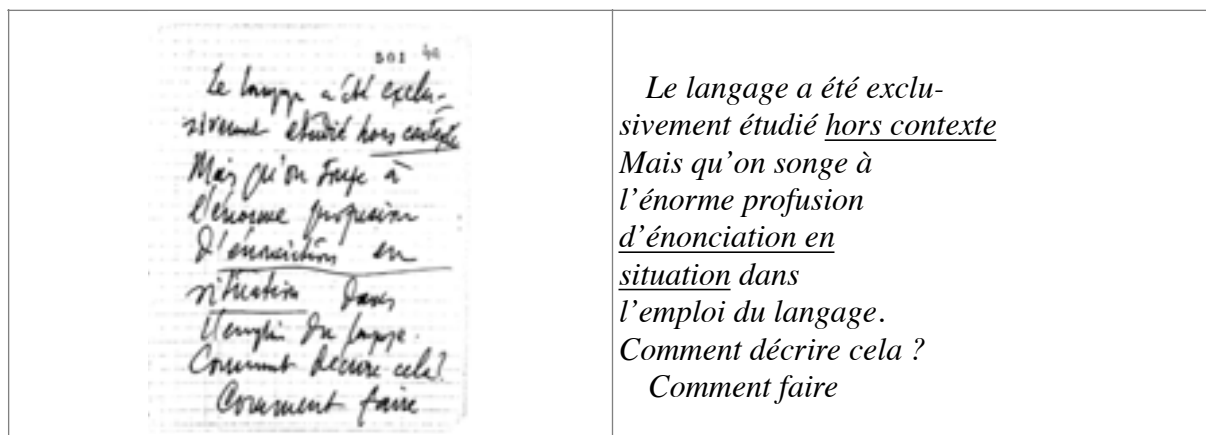 501 40
Le langage a été exclu-
sivement étudié hors contexte
Mais qu'on songe à
l'énorme profusion
d'énonciation en
situation dans
l'emploi du langage.
Comment décrire cela ?
Comment faire
Le langage a été exclu-
sivement étudié hors contexte
Mais qu’on songe à
l’énorme profusion
d’énonciation en
situation dans
l’emploi du langage.
Comment décrire cela ?
Comment faire